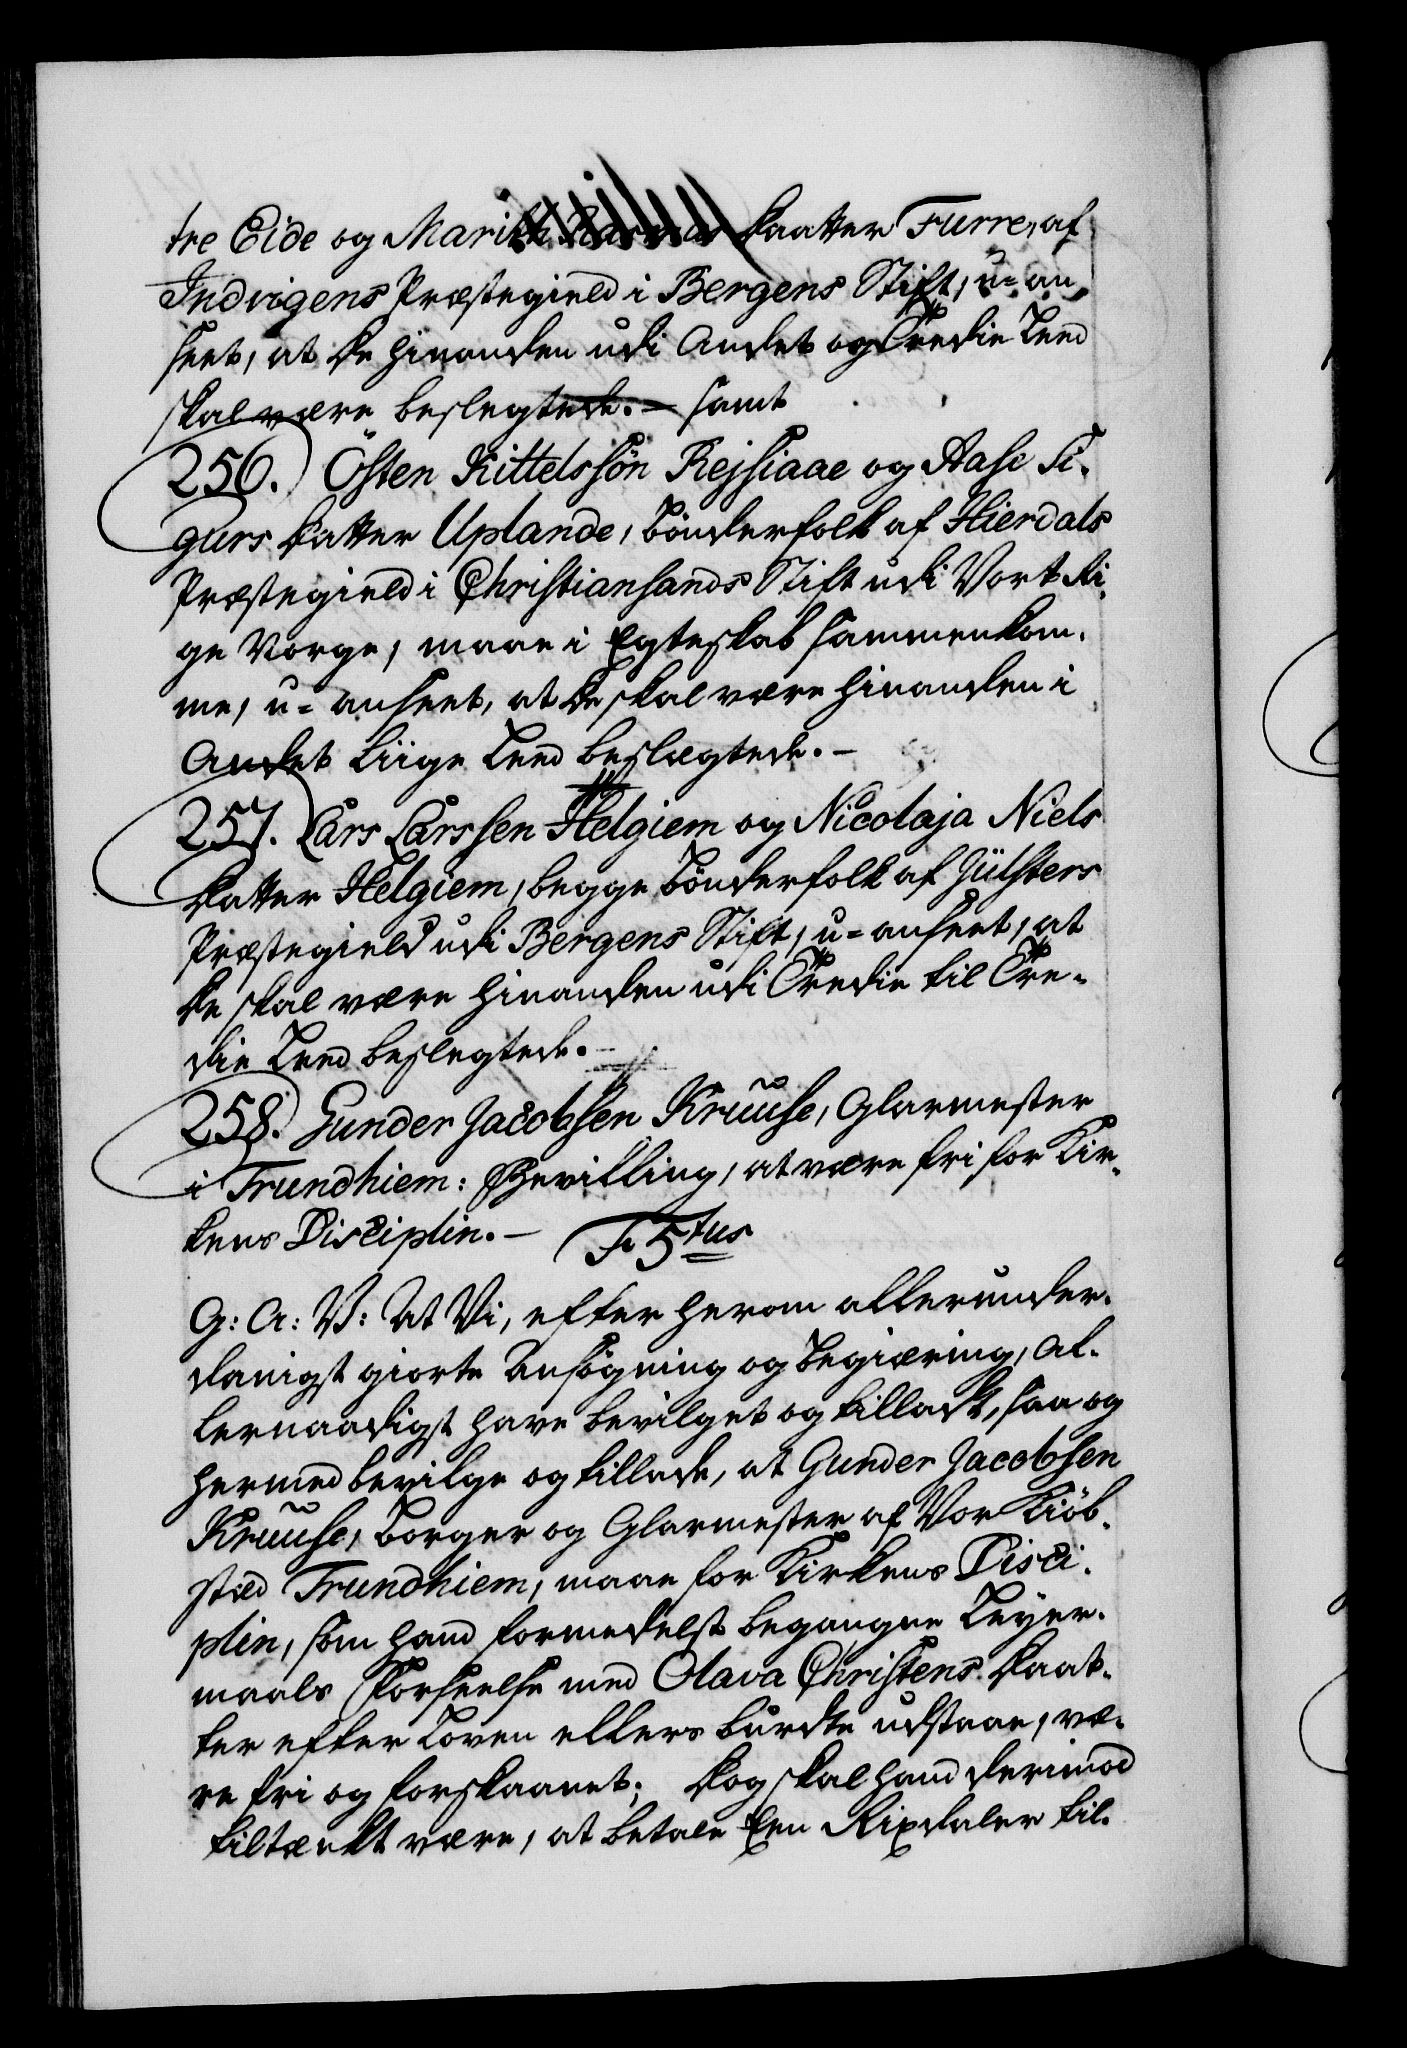 tre Eide og Marithe Rasmus Daatter Furre, af
Indvigens Præstegield i Bergens Stift, u=an
seet, at de hinanden udi Andet og Tredie Leed
skal være beslegtede. – samt
256.) Östen Kittelssön Rejsiaae og Aase Si-
gurs Datter Uplande, Bönderfolk af Hierdals
Præstegield i Christiansands Stift udi Vort Ri-
ge Norge, maae i Egteskab sammenkom-
me, u=anseet, at de skal være hinanden i
Andet Liige Leed beslægtede. –
257. Lars Larssen Helgiem og Nicolaja Niels
Datter Helgiem, begge Bönderfolk af Jülsters
Præstegield udi Bergens Stift, u=anseet, at
de skal være hinanden udi Tredie til Tre-
die Leed beslegtede. –
258. Gunder Jacobsen Kruuse, Glarmester
i Trundhiem: Bevilling, at være fri for Kir-
kens Disciplin. – F. 5tus
G: A: V: At Vi, efter herom allerunder-
danigst giorte Ansögning og Begiæring, al-
lernaadigst have bevilget og tilladt, saa og
hermed bevilge og tillade, at Gunder Jacobsen
Kruuse, Borger og Glarmester af Vor Kiöb-
stæd Trundhiem, maae for Kirkens Disci-
plin, som hand formedelst begangne Leyer-
maals Forseelse med Olava Christens Daat-
ter efter Loven ellers burdte udstaae, væ-
re fri og forskaanet; Dog skal hand derimod
tiltænkt være, at betale Een Rixdaler til